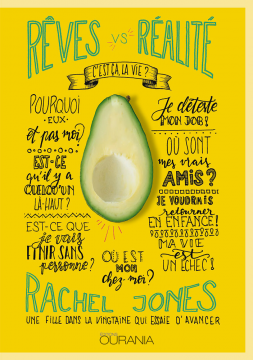 RÊVES VS RÉALITÉ
C'EST ÇA, LA VIE ?
POURQUOI
- EUX -
et pas moi?
EST-CE
qu'il y a
QUELQU'UN
LÀ-HAUT ?
EST-CE QUE
je vais
FINIR SANS
personne?
Je déteste
MON JOB !
OÙ SONT
mes vrais
AMIS ?
JE VOUDRAIS
retourner
EN ENFANCE !
MA VIE
est
UN ÉCHEC !
OÙ EST
MON
chez-moi?
RACHEL JONES
UNE FILLE DANS LA VINGTAINE QUI ESSAIE D'AVANCER
OURANIA